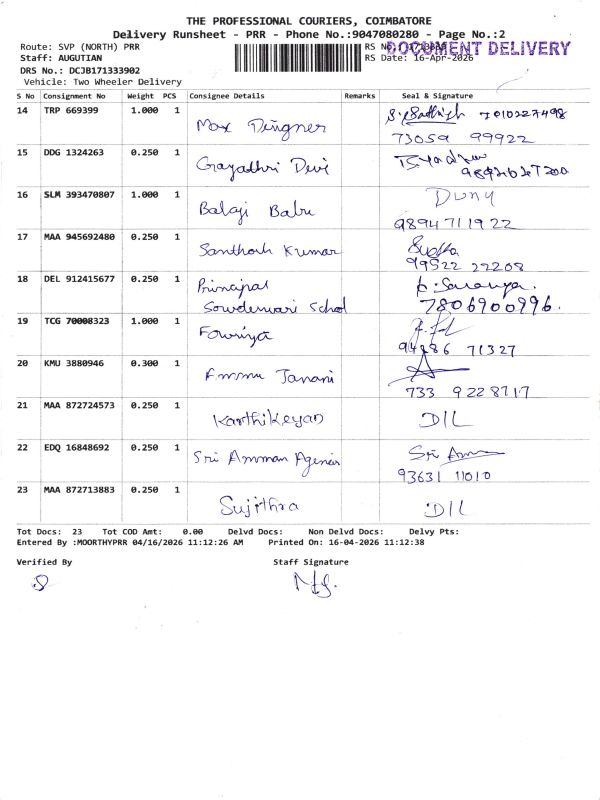 THE PROFESSIONAL COURIERS, COIMBATORE
Delivery Runsheet - PRR - Phone No.:9047080280 - Page No.:2
Route: SVP (NORTH) PRR
RS No
DOCUMENT DELIVERY
Staff: AUGUTIAN
RS Date: 16-Apr-2026
DRS No.: DCJB171333902
Vehicle: Two Wheeler Delivery
S No Consignment No Weight PCS Consignee Details Remarks Seal & Signature
14 TRP 669399 1.000 1 Max
73059 99922
15 DDG 1324263 0.250 1 Gayathri Devi
16 SLM 393470807 1.000 1 Balaji Babu
9894711922
17 MAA 945692480 0.250 1 Santhosh Kumar
99522 22208
18 DEL 912415677 0.250 1 Principal
School
7806900996.
19 TCG 70008323 1.000 1
94286 71327
20 KMU 3880946 0.300 1 Ammu Janani
733 9228717
21 MAA 872724573 0.250 1 Karthikeyan D/L
22 EDQ 16848692 0.250 1 Sri Amman
93631 11010
23 MAA 872713883 0.250 1 Sujithra D/L
Tot Docs: 23 Tot COD Amt: 0.00 Delvd Docs: Non Delvd Docs: Delvy Pts:
Entered By :MOORTHYPRR 04/16/2026 11:12:26 AM Printed On: 16-04-2026 11:12:38
Verified By Staff Signature